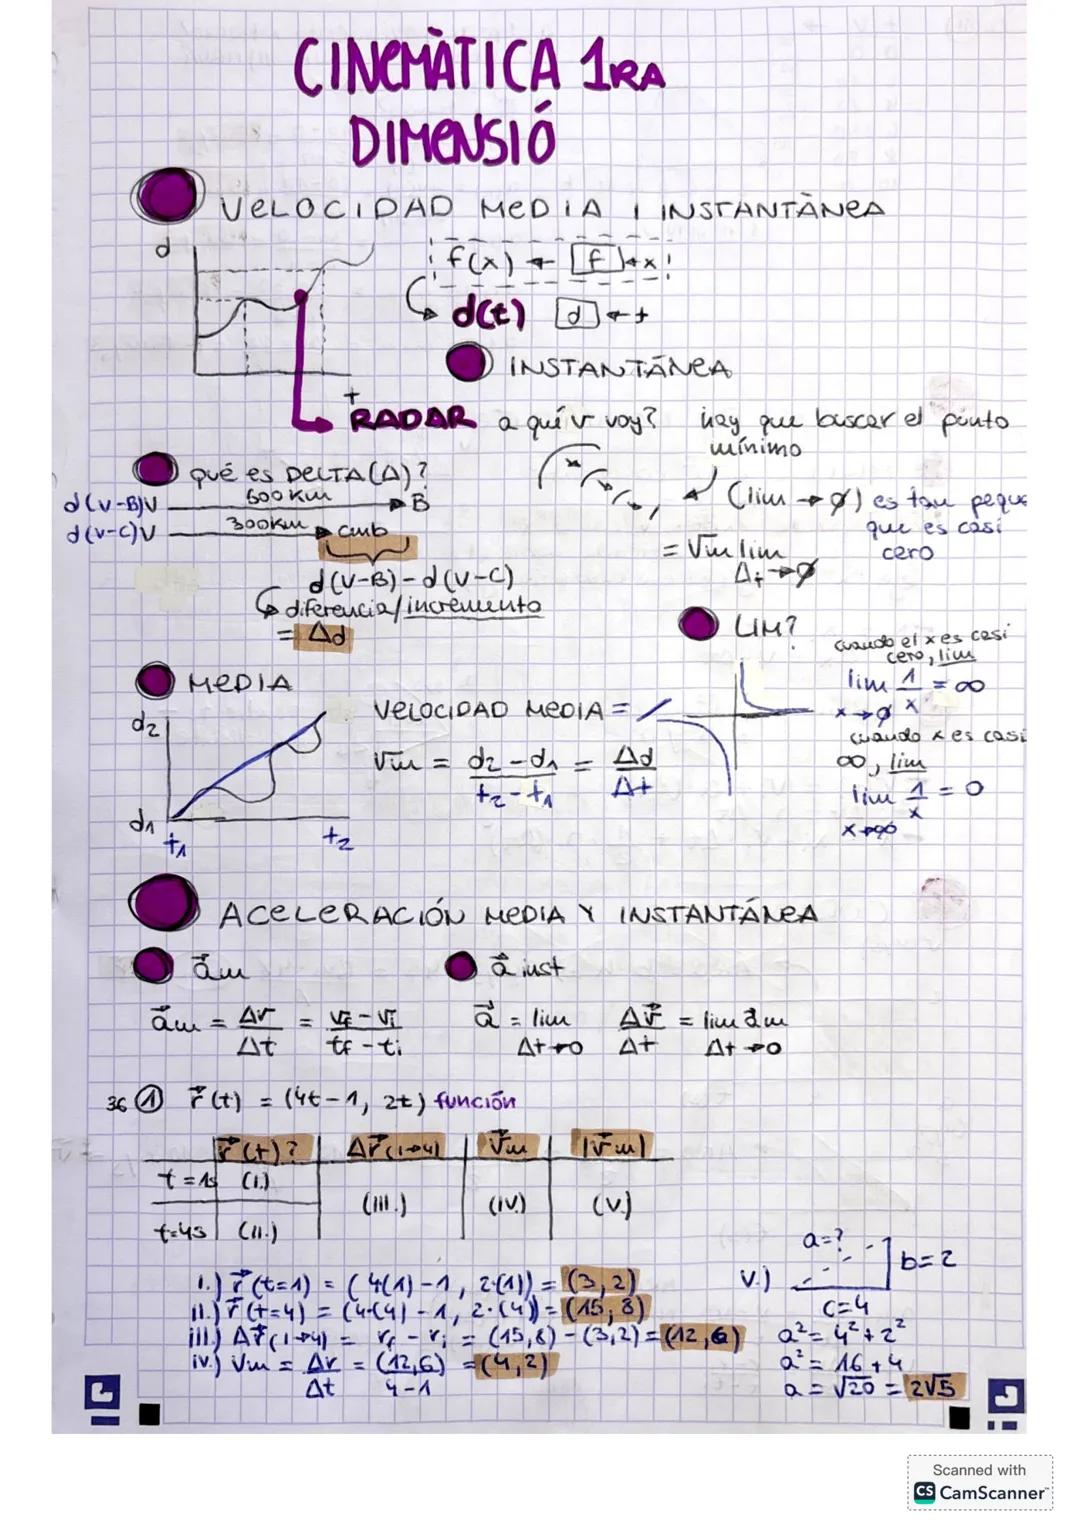 CINEMÀTICA 1RA
DIMENSIÓ
VELOCIDAD MEDIA I INSTANTÀNEA
d
f(x) ← f ← x
d(t) d ← t
INSTANTÀNEA
t
RADAR a qué v voy? hay que buscar el punto
mínimo
qué es DELTA (Δ)?
d(V-B) V 600 km B
d(V-C) V 300 km cmb
(lim → 0) es tan peque
que es casi
cero
= Vm lim
Δt→0
d(V-B) - d(V-C)
diferencia/incremento
= Δd
LIM?
cuando el x es casi
cero, lim
lim 1/x = ∞
x→0
cuando x es casi
∞, lim
lim 1/x = 0
x→∞
MEDIA
d2
d1
t1 t2
VELOCIDAD MEDIA =
Vm = d2 - d1 / t2 - t1 = Δd / Δt
ACELERACIÓN MEDIA Y INSTANTÁNEA
a⃗m
a⃗ inst
a⃗m = Δv / Δt = vf - vi / tf - ti
a⃗ = lim Δv⃗ / Δt = lim a⃗m
Δt→0 Δt→0
36 ① r⃗(t) = (4t-1, 2t) función
r⃗(t)? Δr⃗(1→4) v⃗m |v⃗m|
t=1s (I.)
(III.) (IV.) (V.)
t=4s (II.)
I.) r⃗(t=1) = (4(1)-1, 2·(1)) = (3,2)
II.) r⃗(t=4) = (4·(4)-1, 2·(4)) = (15,8)
III.) Δr⃗(1→4) = rf - ri = (15,8) - (3,2) = (12,6)
IV.) Vm = Δr / Δt = (12,6) / 4-1 = (4,2)
V.) a=?
b=2
c=4
a² = 4² + 2²
a² = 16 + 4
a = √20 = 2√5
Scanned with
CS CamScanner